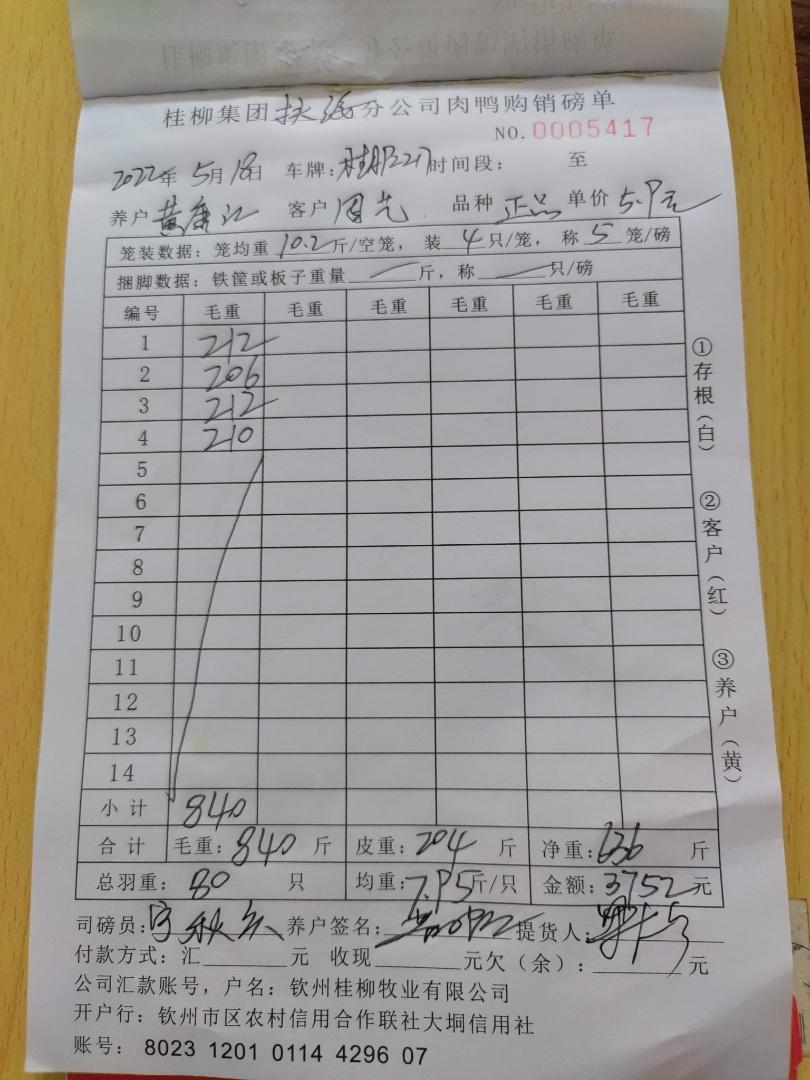 桂柳集团扶绥分公司肉鸭购销磅单
NO.0005417
2022年5月18日 车牌:桂 时间段: 至
养户 黄 江 客户 周先 品种 正品 单价 5.9元
笼装数据: 笼均重 10.2 斤/空笼, 装 4 只/笼, 称 5 笼/磅
捆脚数据: 铁筐或板子重量 — 斤, 称 — 只/磅
编号 毛重 毛重 毛重 毛重 毛重 毛重
1 212
2 206
3 212
4 210
5
6
7
8
9
10
11
12
13
14
小计 840
合计 毛重: 840 斤 皮重: 204 斤 净重: 636 斤
总羽重: 80 只 均重: 7.95 斤/只 金额: 3752 元
司磅员: 养户签名: 提货人:
付款方式: 汇 元 收现 元欠(余): 元
公司汇款账号, 户名: 钦州桂柳牧业有限公司
开户行: 钦州市区农村信用合作联社大垌信用社
账号: 8023 1201 0114 4296 07
①存根(白) ②客户(红) ③养户(黄)